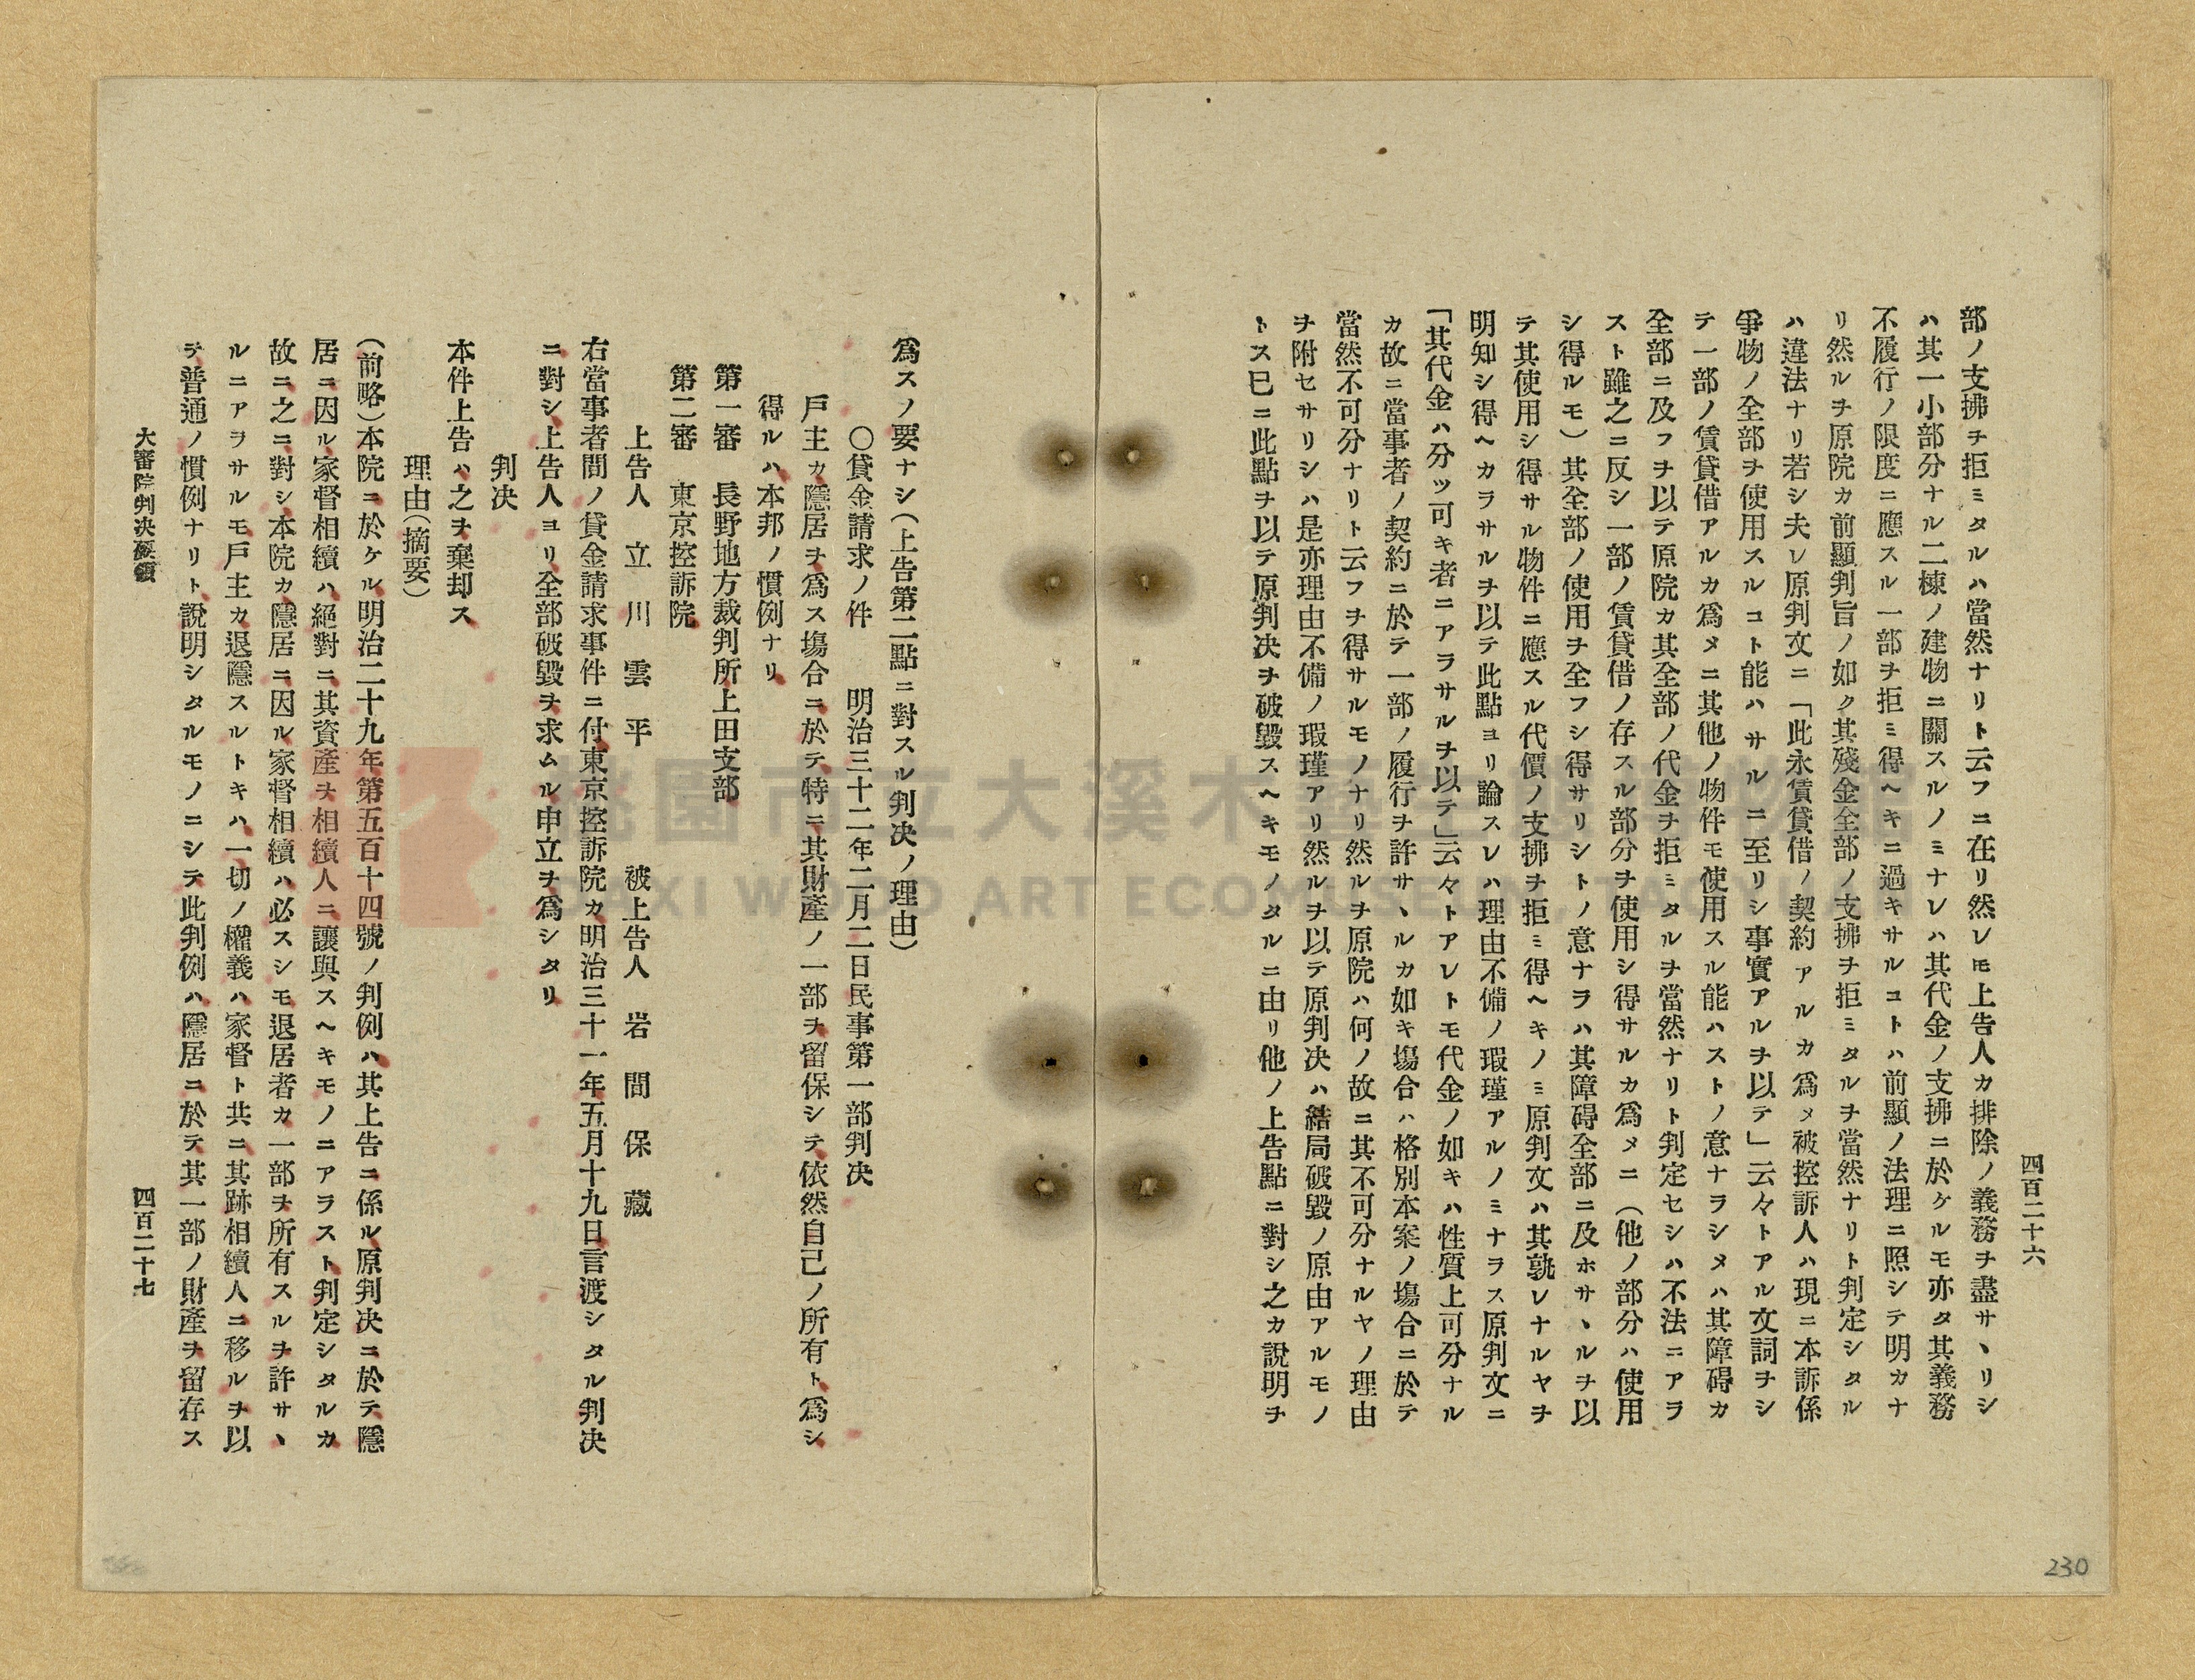 四百二十六
部ノ支拂ヲ拒ミタルハ當然ナリト云フニ在リ然レモ上告人カ排除ノ義務ヲ盡サヽリシ
ハ其一小部分ナル二棟ノ建物ニ關スルノミナレハ其代金ノ支拂ニ於ケルモ亦タ其義務
不履行ノ限度ニ應スル一部ヲ拒ミ得ヘキニ過キサルコトハ前顯ノ法理ニ照シテ明カナ
リ然ルヲ原院カ前顯判旨ノ如ク其殘金全部ノ支拂ヲ拒ミタルヲ當然ナリト判定シタル
ハ違法ナリ若シ夫レ原判文ニ「此永賃貸借ノ契約アルカ爲メ被控訴人ハ現ニ本訴係
爭物ノ全部ヲ使用スルコト能ハサルニ至リシ事實アルヲ以テ」云々トアル文詞ヲシ
テ一部ノ賃貸借アルカ爲メニ其他ノ物件モ使用スル能ハストノ意ナラシメハ其障碍カ
全部ニ及フヲ以テ原院カ其全部ノ代金ヲ拒ミタルヲ當然ナリト判定セシハ不法ニアラ
スト雖之ニ反シ一部ノ賃貸借ノ存スル部分ヲ使用シ得サルカ爲メニ（他ノ部分ハ使用
シ得ルモ）其全部ノ使用ヲ全フシ得サリシトノ意ナラハ其障碍全部ニ及ホサヽルヲ以
テ其使用シ得サル物件ニ應スル代價ノ支拂ヲ拒ミ得ヘキノミ原判文ハ其孰レナルヤヲ
明知シ得ヘカラサルヲ以テ此點ヨリ論スレハ理由不備ノ瑕瑾アルノミナラス原判文ニ
「其代金ハ分ツ可キ者ニアラサルヲ以テ」云々トアレトモ代金ノ如キハ性質上可分ナル
カ故ニ當事者ノ契約ニ於テ一部ノ履行ヲ許サヽルカ如キ塲合ハ格別本案ノ塲合ニ於テ
當然不可分ナリト云フヲ得サルモノナリ然ルヲ原院ハ何ノ故ニ其不可分ナルヤノ理由
ヲ附セサリシハ是亦理由不備ノ瑕瑾アリ然ルヲ以テ原判决ハ結局破毀ノ原由アルモノ
トス已ニ此點ヲ以テ原判决ヲ破毀スヘキモノタルニ由リ他ノ上告點ニ對シ之カ說明ヲ
爲スノ要ナシ（上告第二點ニ對スル判决ノ理由）
〇貸金請求ノ件 明治三十二年二月二日民事第一部判决
戶主カ隱居ヲ爲ス塲合ニ於テ特ニ其財產ノ一部ヲ留保シテ依然自己ノ所有ト爲シ
得ルハ本邦ノ慣例ナリ
第一審 長野地方裁判所上田支部
第二審 東京控訴院
上告人 立川雲平 被上告人 岩間保藏
右當事者間ノ貸金請求事件ニ付東京控訴院カ明治三十一年五月十九日言渡シタル判决
ニ對シ上告人ヨリ全部破毀ヲ求ムル申立ヲ爲シタリ
判决
本件上告ハ之ヲ棄却ス
理由（摘要）
（前略）本院ニ於ケル明治二十九年第五百十四號ノ判例ハ其上告ニ係ル原判决ニ於テ隱
居ニ因ル家督相續ハ絕對ニ其資產ヲ相續人ニ讓與スヘキモノニアラスト判定シタルカ
故ニ之ニ對シ本院カ隱居ニ因ル家督相續ハ必スシモ退居者カ一部ヲ所有スルヲ許サヽ
ルニアラサルモ戶主カ退隱スルトキハ一切ノ權義ハ家督ト共ニ其跡相續人ニ移ルヲ以
テ普通ノ慣例ナリト說明シタルモノニシテ此判例ハ隱居ニ於テ其一部ノ財產ヲ留存ス
大審院判决要領
四百二十七
230
桃園市立大溪木藝生態博物館
DAXI WOOD ART ECOMUSEUM, TAOYUAN